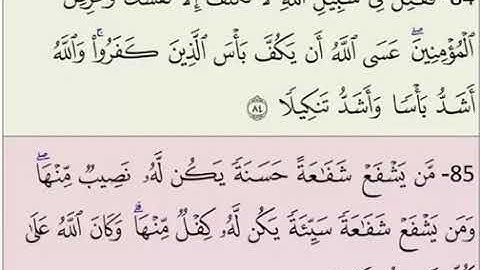 84- فَقَـٰتِلْ فِى سَبِيلِ ٱللَّهِ لَا تُكَلَّفُ إِلَّا نَفْسَكَ ۚ وَحَرِّضِ
ٱلْمُؤْمِنِينَ ۖ عَسَى ٱللَّهُ أَن يَكُفَّ بَأْسَ ٱلَّذِينَ كَفَرُوا۟ ۚ وَٱللَّهُ
أَشَدُّ بَأْسًا وَأَشَدُّ تَنكِيلًا ﴿٨٤﴾
85- مَّن يَشْفَعْ شَفَـٰعَةً حَسَنَةً يَكُن لَّهُۥ نَصِيبٌ مِّنْهَا ۖ
وَمَن يَشْفَعْ شَفَـٰعَةً سَيِّئَةً يَكُن لَّهُۥ كِفْلٌ مِّنْهَا ۗ وَكَانَ ٱللَّهُ عَلَىٰ